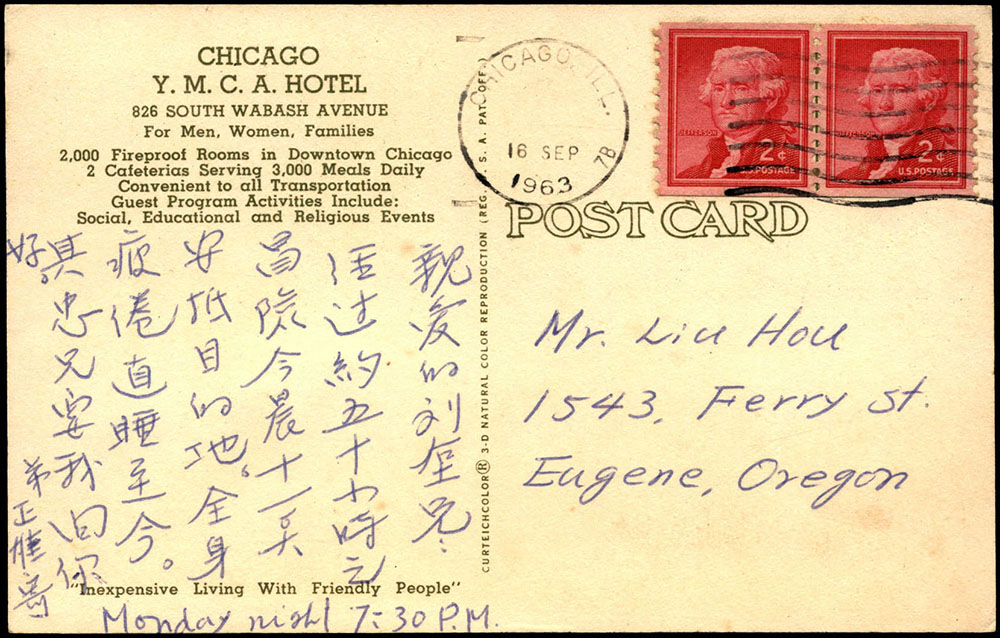 CHICAGO
Y. M. C. A. HOTEL
826 SOUTH WABASH AVENUE
For Men, Women, Families
2,000 Fireproof Rooms in Downtown Chicago
2 Cafeterias Serving 3,000 Meals Daily
Convenient to all Transportation
Guest Program Activities Include:
Social, Educational and Religious Events
親爱的刘垕兄：
经过約五十小時之
冒險今晨十一奌
安抵目的地，全身
疲倦直睡至今。
其忠兄要我问你
好。
弟
正雄寄
"Inexpensive Living With Friendly People"
Monday night 7:30 P.M.
CURTEICHCOLOR® 3-D NATURAL COLOR REPRODUCTION (REG. U. S. A. PAT. OFF.)
CHICAGO, ILL.
16 SEP
1963
78
JEFFERSON
2¢
U.S. POSTAGE
JEFFERSON
2¢
U.S. POSTAGE
POST CARD
Mr. Liu Hou
1543, Ferry St.
Eugene, Oregon